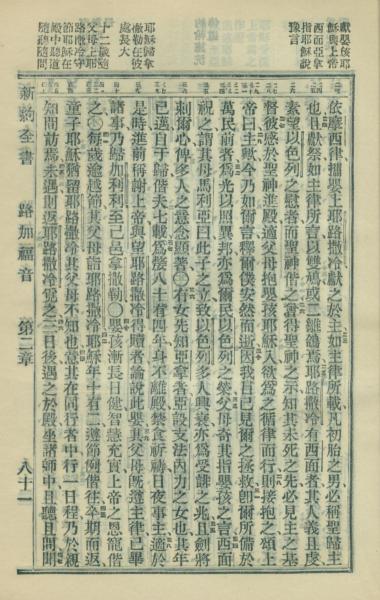 獻嬰孩耶
穌與上帝
西面亞拿
指耶穌說
豫言
耶穌歸拿
撒勒在彼
處長大
十二歲隨
父母上耶
路撒冷守
節耶穌在
殿中聽道
隨聽隨問
依摩西律攜嬰上耶路撒冷獻之於主如主律所載凡初胎之男必稱聖歸主
也且獻祭如主律所言以雙鳲或二雛鴿焉耶路撒冷有西面者其人義且虔
素望以色列之慰者而聖神偕之嘗得聖神之示知其未死之先必見主之基
督彼感於聖神進殿適父母抱嬰孩耶穌入欲爲之循律而行則接抱之頌上
帝曰主歟今乃如爾言釋爾僕安然而逝因我目已見爾之拯救卽爾所備於
萬民前者爲光以照異邦亦爲爾民以色列之榮父母奇其指嬰孩之言西面
祝之謂其母馬利亞曰此子之立致以色列多人興衰亦爲受誹之兆且劍將
刺爾心俾多人之意念顯著○有女先知亞拿者亞設支法內力之女也其年
已邁自于歸偕夫七載爲嫠八十有四年身不離殿禁食祈禱日夜事主適於
是時進前稱謝上帝與望耶路撒冷得贖者論說此嬰其父母旣遵主律已畢
諸事乃歸加利利至己邑拿撒勒○嬰孩漸長日健智慧充實上帝之恩寵偕
之○每歲逾越節其父母詣耶路撒冷耶穌年十有二遵節例偕往卒期而返
童子耶穌猶留耶路撒冷其父母不知也意其在同行者中行一日程乃於親
知間訪焉未遇則返耶路撒冷覓之三日後遇之於殿坐諸師中且聽且問聞
新約全書
路加福音
第二章
八十一